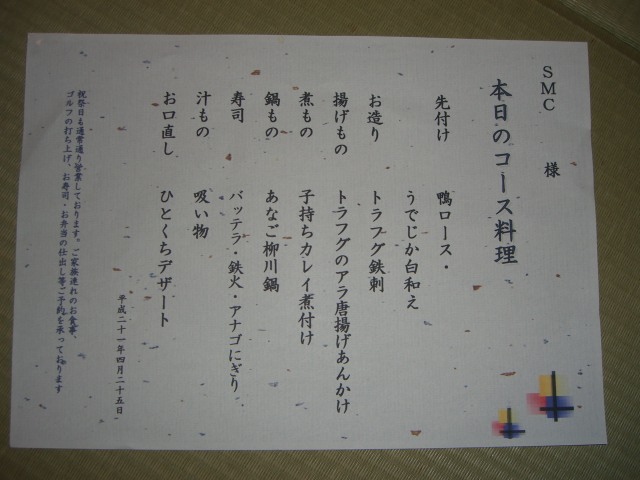 SMC 様
本日のコース料理
先付け 鴨ロース・
うでじか白和え
お造り トラフグ鉄刺
揚げもの トラフグのアラ唐揚げあんかけ
煮もの 子持ちカレイ煮付け
鍋もの あなご柳川鍋
寿司 バッテラ・鉄火・アナゴにぎり
汁もの 吸い物
お口直し ひとくちデザート
平成二十一年四月二十五日
祝祭日も通常通り営業しております。ご家族連れのお食事、
ゴルフの打ち上げ、お寿司・お弁当の仕出し等ご予約を承っております